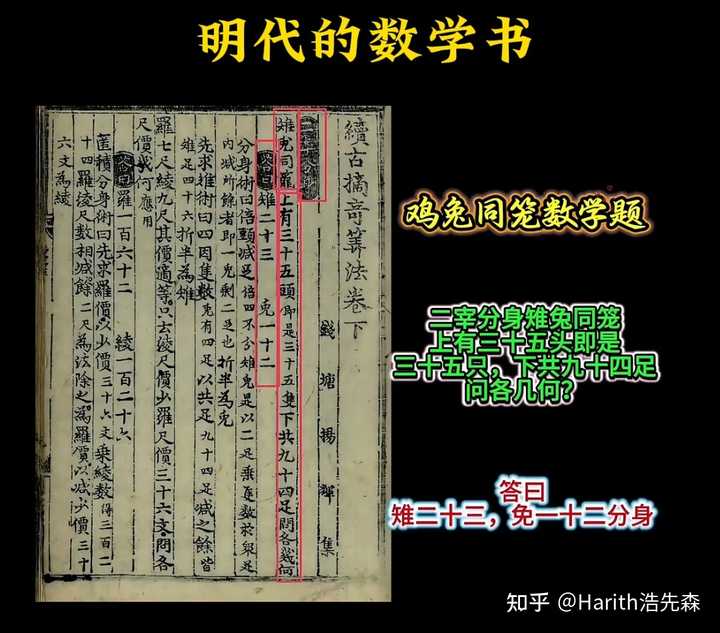 明代的数学书
續古摘奇筭法卷下
錢塘楊輝集
雉兔同籠上有三十五頭即是三十五隻下共九十四足問各幾何
答曰雉二十三 兔一十二
分身術曰倍頭減足
內減所餘者即一兔剩二足也折半為兔
先求雉術曰四因隻數兔有四足以共足九十四足減之餘皆
雉足四十六折半為雉
羅七尺綾九尺其價適等只云綾尺價少羅尺價三十六文問各
尺價幾何應用
答曰羅一百六十二 綾一百二十六
匿積分身術曰先求羅價以少價三十六文乘綾數得三百二
十四羅綾尺數相減餘二尺為法除之為羅價以減少價三十
六文為綾
鸡兔同笼数学题
二宰分身雉兔同笼
上有三十五头即是
三十五只，下共九十四足
问各几何？
答曰
雉二十三，免一十二分身
知乎 @Harith浩先森